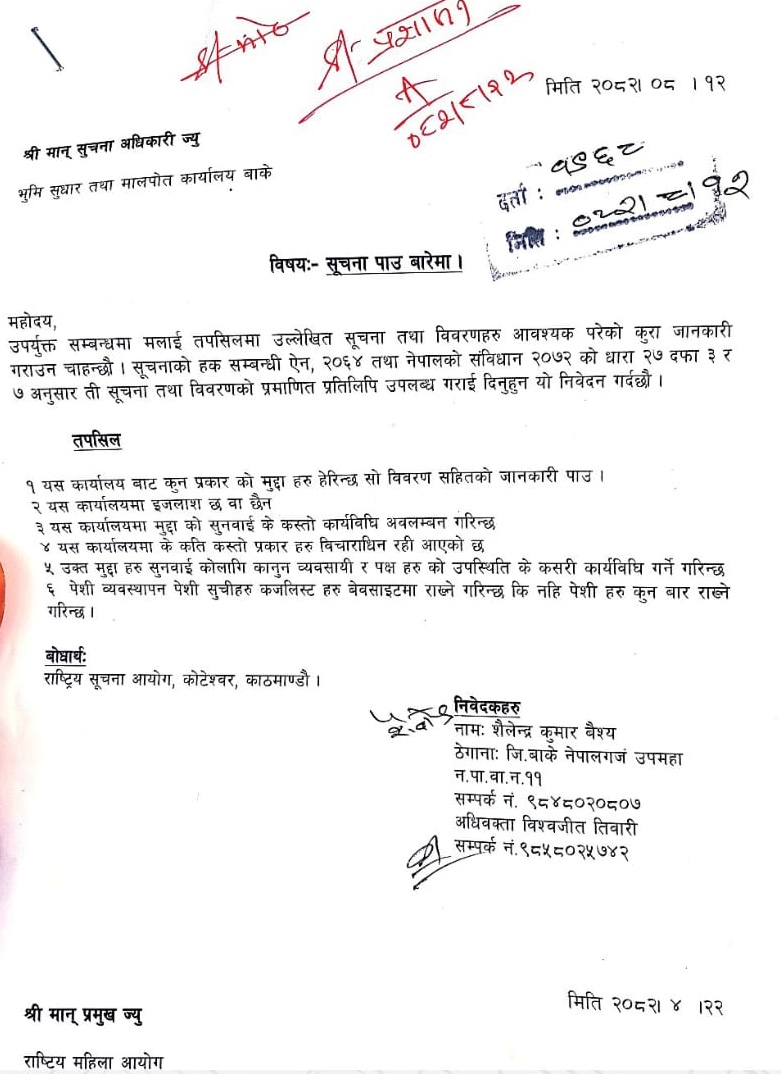 श्री प्रशासन
मिति २०८२। ०८ । १२
श्री मान् सुचना अधिकारी ज्यु
भुमि सुधार तथा मालपोत कार्यालय बाके
दर्ता :
मिति : ०८२। ८। १२
विषयः- सूचना पाउ बारेमा ।
महोदय,
उपर्युक्त सम्बन्धमा मलाई तपसिलमा उल्लेखित सूचना तथा विवरणहरु आवश्यक परेको कुरा जानकारी
गराउन चाहन्छौ । सूचनाको हक सम्बन्धी ऐन, २०६४ तथा नेपालको संविधान २०७२ को धारा २७ दफा ३ र
७ अनुसार ती सूचना तथा विवरणको प्रमाणित प्रतिलिपि उपलब्ध गराई दिनुहुन यो निवेदन गर्दछौ ।
तपसिल
१ यस कार्यालय बाट कुन प्रकार को मुद्दा हरु हेरिन्छ सो विवरण सहितको जानकारी पाउ ।
२ यस कार्यालयमा इजलाश छ वा छैन
३ यस कार्यालयमा मुद्दा को सुनवाई के कस्तो कार्यविधि अवलम्बन गरिन्छ
४ यस कार्यालयमा के कति कस्तो प्रकार हरु विचाराधिन रही आएको छ
५ उक्त मुद्दा हरु सुनवाई कोलागि कानुन व्यवसायी र पक्ष हरु को उपस्थिति के कसरी कार्यविधि गर्ने गरिन्छ
६ पेशी व्यवस्थापन पेशी सुचीहरु कजलिस्ट हरु बेवसाइटमा राख्ने गरिन्छ कि नहि पेशी हरु कुन बार राख्ने
गरिन्छ ।
बोधार्थः
राष्ट्रिय सूचना आयोग, कोटेश्वर, काठमाण्डौ ।
निवेदकहरु
नामः शैलेन्द्र कुमार बैश्य
ठेगानाः जि.बाके नेपालगजं उपमहा
न.पा.वा.न.११
सम्पर्क नं. ९८४८०२०८०७
अधिवक्ता विश्वजीत तिवारी
सम्पर्क नं.९८५८०२५७४२
मिति २०८२। ४ ।२२
श्री मान् प्रमुख ज्यु
राष्टिय महिला आयोग